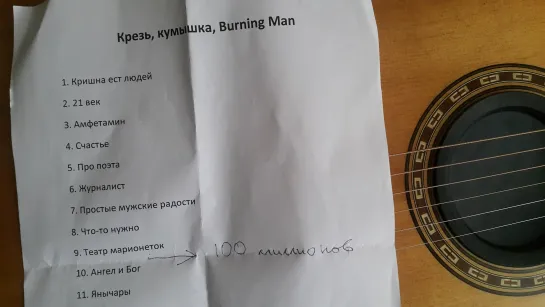 Крезь, кумышка, Burning Man
1. Кришна ест людей
2. 21 век
3. Амфетамин
4. Счастье
5. Про поэта
6. Журналист
7. Простые мужские радости
8. Что-то нужно
9. Театр марионеток
→ 100 миллионов
10. Ангел и Бог
11. Янычары